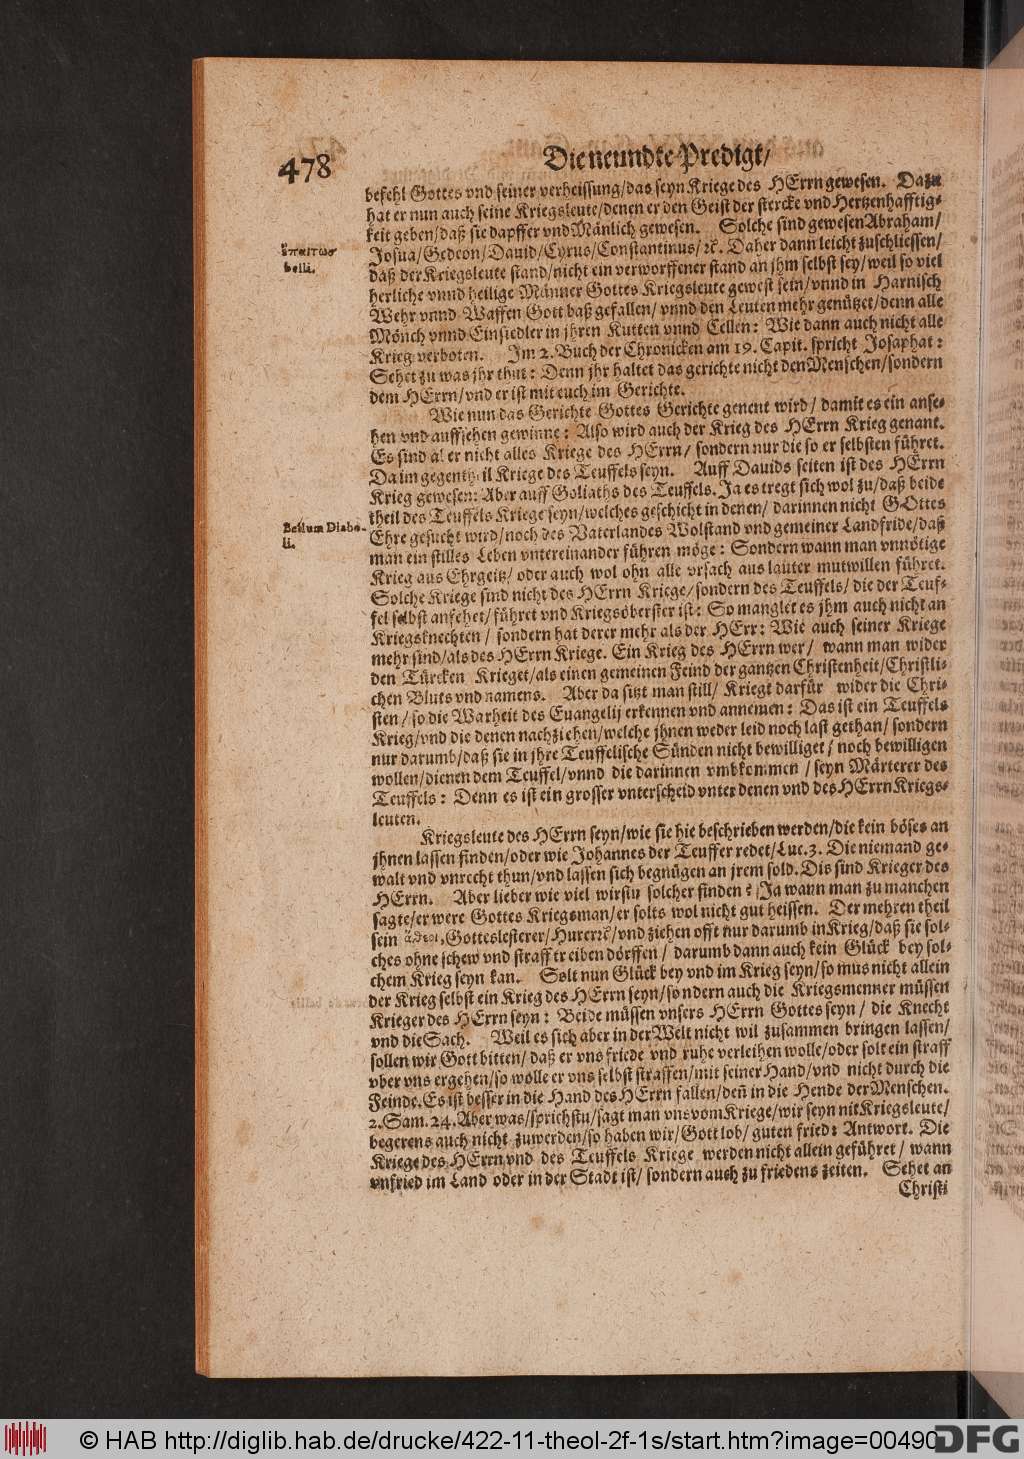 478
Die neundte Predigt/
befehl Gottes vnd seiner verheissung/das seyn Kriege des HErrn gewesen. Dazu
hat er nun auch seine Kriegsleute/denen er den Geist der stercke vnd Hertzenhafftig-
keit geben/daß sie dapffer vnd Mänlich gewesen. Solche sind gewesen Abraham/
Josua/Gedeon/Dauid/Cyrus/Constantinus/ꝛc. Daher dann leicht zuschliessen/
daß der Kriegsleute stand/nicht ein verworffener stand an jhm selbst sey/weil so viel
herliche vnnd heilige Männer Gottes Kriegsleute gewest sein/vnnd in Harnisch
Wehr vnnd Waffen Gott baß gefallen/ vnnd den Leuten mehr genützet/denn alle
Mönch vnnd Einsiedler in jhren Kutten vnnd Cellen: Wie dann auch nicht alle
Krieg verboten. Im 2. Buch der Chronicken am 19. Capit. spricht Josaphat:
Sehet zu was jhr thut: Denn jhr haltet das gerichte nicht den Menschen/sondern
dem HErrn/vnd er ist mit euch im Gerichte.
belli.
Wie nun das Gerichte Gottes Gerichte genent wird/ damit es ein anse-
hen vnd auffsehen gewinne: Also wird auch der Krieg des HErrn Krieg genant.
Es sind aber nicht alles Kriege des HErrn/ sondern nur die so er selbsten führet.
Da im gegentheil Kriege des Teuffels seyn. Auff Dauids seiten ist des HErrn
Krieg gewesen: Aber auff Goliaths des Teuffels. Ja es tregt sich wol zu/daß beide
theil des Teuffels Kriege seyn/welches geschicht in denen/ darinnen nicht GOttes
Ehre gesucht wird/noch des Vaterlandes Wolstand vnd gemeiner Landfride/daß
man ein stilles Leben vntereinander führen möge: Sondern wann man vnnötige
Krieg aus Ehrgeitz/ oder auch wol ohn alle vrsach aus lauter mutwillen führet.
Solche Kriege sind nicht des HErrn Kriege/sondern des Teuffels/ die der Teuf-
fel selbst anfehet/führet vnd Kriegsöberster ist: So manglet es jhm auch nicht an
Kriegsknechten/ sondern hat derer mehr als der HErr: Wie auch seiner Kriege
mehr sind/als des HErrn Kriege. Ein Krieg des HErrn wer/ wann man wider
den Türcken Krieget/als einen gemeinen Feind der gantzen Christenheit/Christli-
chen Bluts vnd namens. Aber da sitzt man still/ Kriegt darfür wider die Chri-
sten/ so die Warheit des Euangelij erkennen vnd annemen: Das ist ein Teuffels
Krieg/vnd die denen nachziehen/welche jhnen weder leid noch last gethan/ sondern
nur darumb/daß sie in jhre Teuffelische Sünden nicht bewilliget/ noch bewilligen
wollen/dienen dem Teuffel/vnnd die darinnen vmbkommen/ seyn Märterer des
Teuffels: Denn es ist ein grosser vnterscheid vnter denen vnd des HErrn Kriegs-
leuten.
Bellum Diabo-
li.
Kriegsleute des HErrn seyn/wie sie hie beschrieben werden/die kein böses an
jhnen lassen finden/oder wie Johannes der Teuffer redet/Luc. 3. Die niemand ge-
walt vnd vnrecht thun/vnd lassen sich begnügen an jrem sold. Dis sind Krieger des
HErrn. Aber lieber wie viel wirstu solcher finden? Ja wann man zu manchen
sagte/er were Gottes Kriegsman/er solts wol nicht gut heissen. Der mehren theil
sein ἄθεοι, Gotteslesterer/Hurer ꝛc/vnd ziehen offt nur darumb in Krieg/daß sie sol-
ches ohne schew vnd straff treiben dörffen/ darumb dann auch kein Glück bey sol-
chem Krieg seyn kan. Solt nun Glück bey vnd im Krieg seyn/so mus nicht allein
der Krieg selbst ein Krieg des HErrn seyn/sondern auch die Kriegsmenner müssen
Krieger des HErrn seyn: Beide müssen vnsers HErrn Gottes seyn/ die Knecht
vnd die Sach. Weil es sich aber in der Welt nicht wil zusammen bringen lassen/
sollen wir Gott bitten/ daß er vns friede vnd ruhe verleihen wolle/oder solt ein straff
vber vns ergehen/so wolle er vns selbst straffen/mit seiner Hand/vnd nicht durch die
Feinde. Es ist besser in die Hand des HErrn fallen/deñ in die Hende der Menschen.
2. Sam. 24. Aber was/sprichstu/sagt man vns vom Kriege/wir seyn nit Kriegsleute/
begerens auch nicht zuwerden/so haben wir/Gott lob/ guten fried: Antwort. Die
Kriege des HErrn vnd des Teuffels Kriege werden nicht allein geführet/ wann
vnfried im Land oder in der Stadt ist/ sondern auch zu friedens zeiten. Sehet an
Christi
© HAB http://diglib.hab.de/drucke/422-11-theol-2f-1s/start.htm?image=00490
DFG